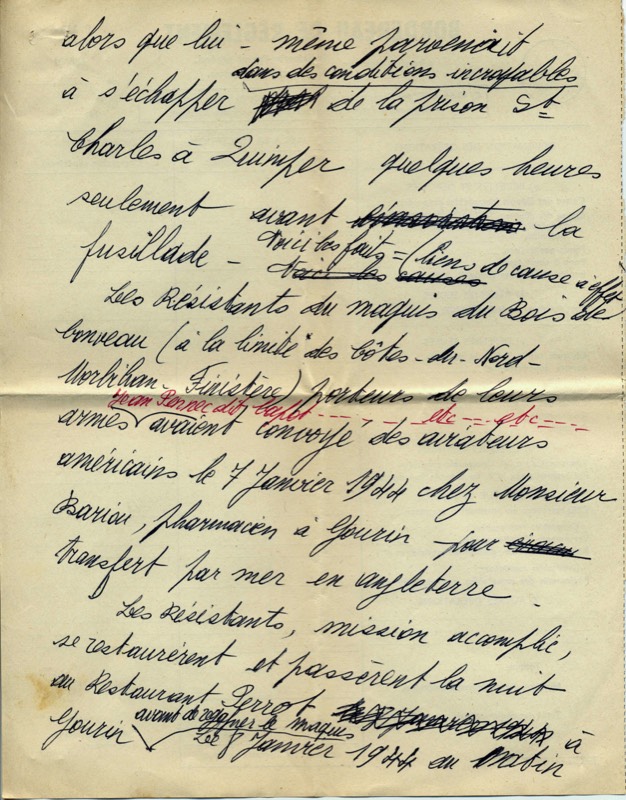 alors que lui-même parvenait
dans des conditions incroyables
à s'échapper de la prison St
Charles à Quimper quelques heures
seulement avant la
fusillade - Voici les faits = (liens de cause à effet
Voici les causes
Les Résistants du maquis du Bois de
Conveau (à la limite des Côtes-du-Nord-
Morbihan-Finistère) porteurs de leurs
Jean Pennec dit Capot - - - , - etc - - etc - - -
armes avaient convoyé des aviateurs
américains le 7 Janvier 1944 chez Monsieur
Bariou, pharmacien à Gourin pour
transfert par mer en angleterre.
Les Résistants, mission accomplie,
se restaurèrent et passèrent la nuit
au Restaurant Perrot à
avant de regagner le maquis
Gourin Le 8 Janvier 1944 au matin